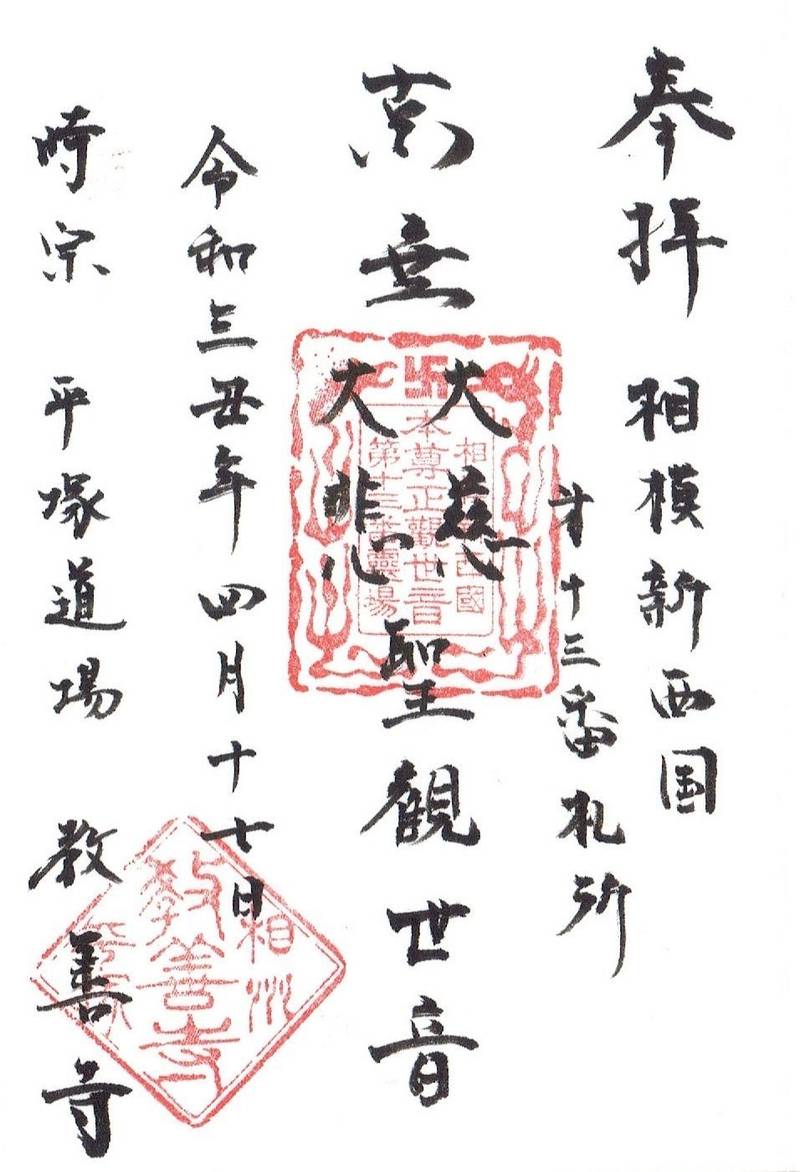 奉拝 相模新西国
才十三番札所
南無 大慈
大悲 聖観世音
令和三丑年四月十七日
時宗 平塚道場 教善寺
卍
本尊正觀世音
第十三番靈場
相州
教善寺